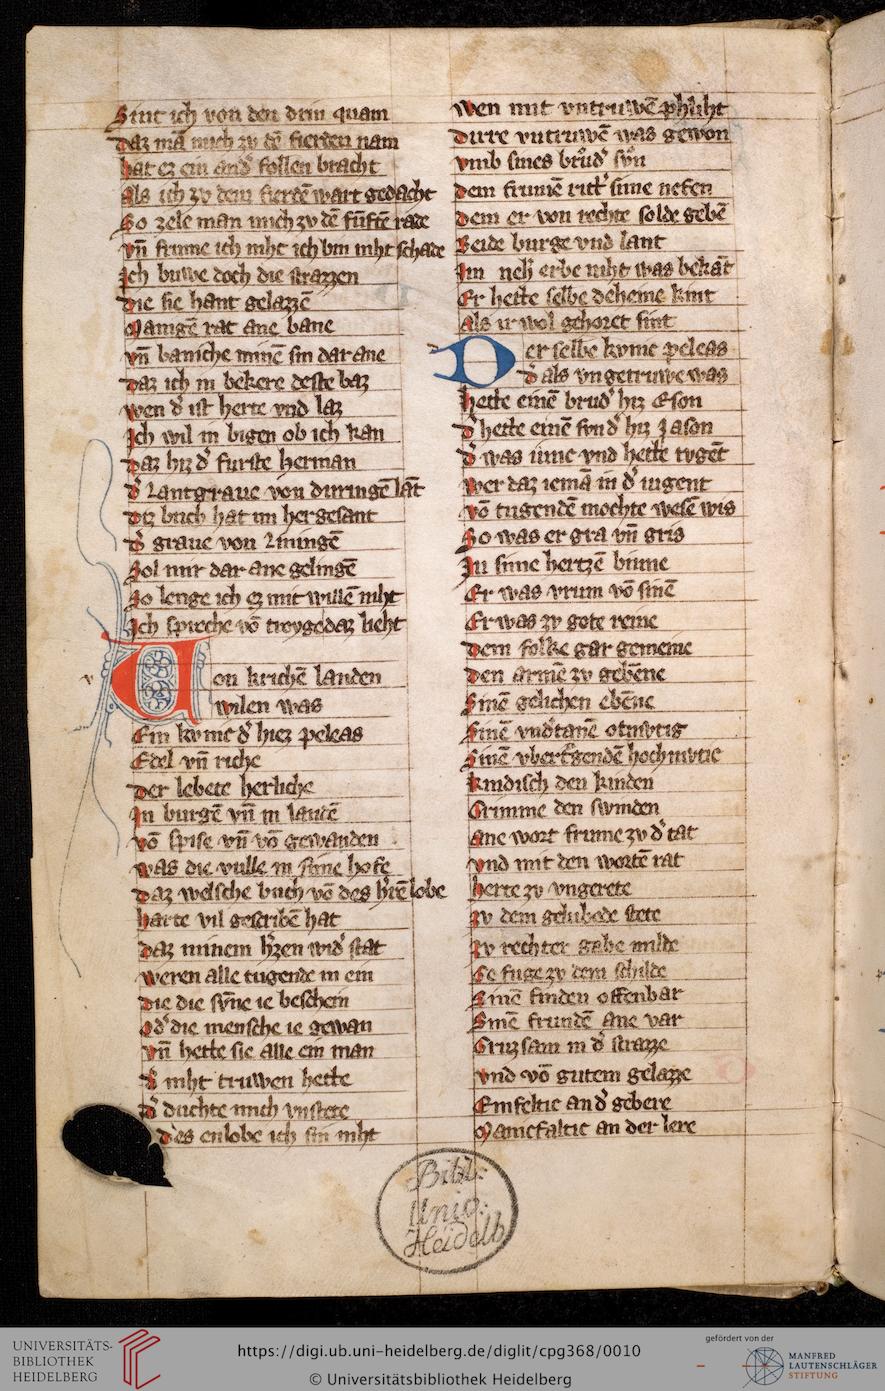 Sint ich von den drin quam
Daz mā mich zv dē fierden nam
hat ez ein and' follen bracht
Als ich zv dem fierdē wart gedacht
So zele man mich zv dē fūftē rade
vn̄ frume ich niht ich bin niht schade
Ich buwe doch die strazzen
Die sie hant gelazzē
Manigē rat ane bane
vn̄ baniche minē sin dar ane
Daz ich in bekere deste baz
wen d' ist herte vnd laz
Ich wil in bigen ob ich kan
Daz hiz d' furste herman
d' Lantgraue von duringē lāt
Diz buch hat im her gesant
d' graue von Liningē
Sol mir dar ane gelingē
So lenge ich ez mit willē niht
Ich spreche vō troyge daz lieht
Von krichē landen
wilen was
Ein kvnic d' hiez peleas
Edel vn̄ riche
Der lebete herliche
In burgē vn̄ in landē
vō spise vn̄ vō gewanden
was die vulle in sime hofe
Daz welsche buch vō des h'rē lobe
harte vil gescribē hat
Daz minem h'zen wid' stat
weren alle tugende in ein
Die die svn̄e ie beschein
Od' die mensche ie gewan
vn̄ hette sie alle ein man
d' niht truwen hette
d' duchte mich vnstete
des enlobe ich sin niht
wen mit vntruwē phliht
Dirre vntruwē was gewon
vmb sines brud' svn
dem frumē rit' sime nefen
Dem er von rechte solde gebē
Beide burge vnd lant
Im neh' erbe niht was bekāt
Er hette selbe deheine kint
Als ir wol gehoret sint
Der selbe kvnic peleas
d' als vngetruwe was
hette einē brud' hiz Eson
d' hette einē svn d' hiz Jason
d' was iūnc vnd hette tvgēt
wer daz iemā in d' iugent
vō tugendē mochte wesē wis
So was er gra vn̄ gris
In sime hertzē binne
Er was vrum vō sinē
Er was zv gote reine
Dem folke gar gemeine
Den armē zv gebēne
Sinē gelichen ebēne
Sinē vnd'tanē otmvtig
Sinē vbersigendē hochmvtic
kindisch den kinden
Grimme den swinden
Ane wort frume zv d' tat
vnd mit den wortē rat
herte zv vngerete
zv dem gelubede stete
zv rechter gabe milde
Gefuge zv dem schilde
Sinē finden offenbar
Sinē frundē ane var
Gruzsam in d' strazze
vnd vō gutem gelazze
Einfeltic an d' gebere
Manicfaltic an der lere
Bibl.
Univ.
Heidelb
UNIVERSITÄTS-
BIBLIOTHEK
HEIDELBERG
https://digi.ub.uni-heidelberg.de/diglit/cpg368/0010
© Universitätsbibliothek Heidelberg
gefördert von der
MANFRED
LAUTENSCHLÄGER
STIFTUNG